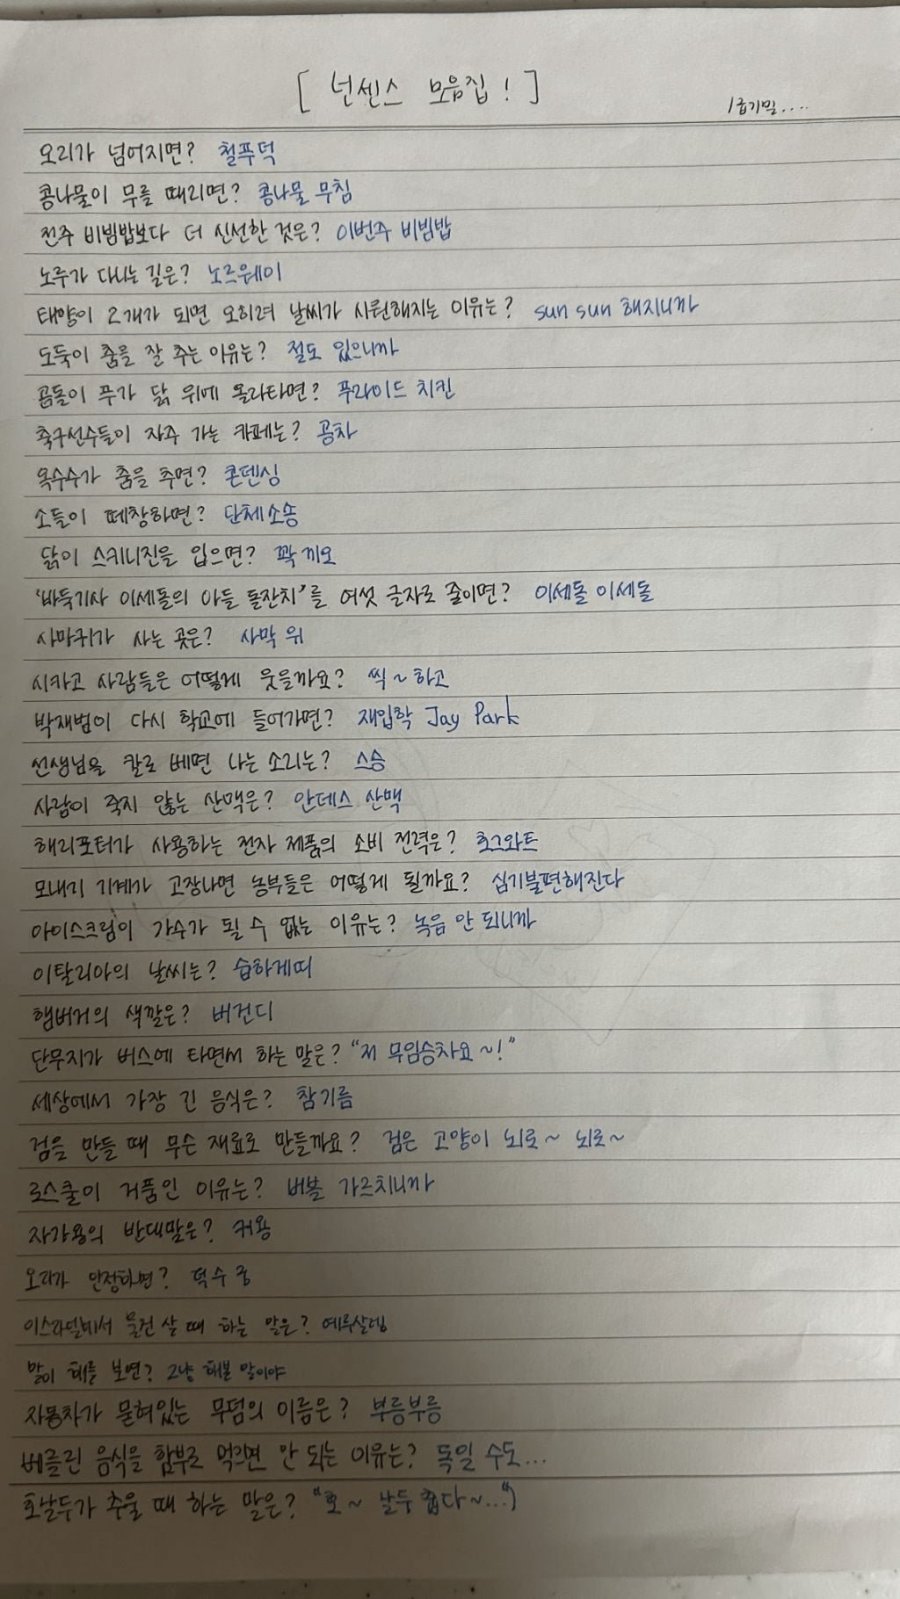 [ 넌센스 모음집 ! ]
1급기밀....
오리가 넘어지면? 철푸덕
콩나물이 무를 때리면? 콩나물 무침
전주 비빔밥보다 더 신선한 것은? 이번주 비빔밥
노루가 다니는 길은? 노르웨이
태양이 2개가 되면 오히려 날씨가 시원해지는 이유는? sun sun 해지니까
도둑이 춤을 잘 추는 이유는? 절도 있으니까
곰돌이 푸가 닭 위에 올라타면? 푸라이드 치킨
축구선수들이 자주 가는 카페는? 공차
옥수수가 춤을 추면? 콘댄싱
소들이 떼창하면? 단체소송
닭이 스키니진을 입으면? 꽉 끼오
'바둑기사 이세돌의 아들 돌잔치'를 여섯 글자로 줄이면? 이세돌 이세돌
사마귀가 사는 곳은? 사막 위
시카고 사람들은 어떻게 웃을까요? 씩~하고
박재범이 다시 학교에 들어가면? 재입학 Jay Park
선생님을 칼로 베면 나는 소리는? 스승
사람이 죽지 않는 산맥은? 안데스 산맥
해리포터가 사용하는 전자 제품의 소비 전력은? 호그와트
모내기 기계가 고장나면 농부들은 어떻게 될까요? 심기불편해진다
아이스크림이 가수가 될 수 없는 이유는? 녹음 안 되니까
이탈리아의 날씨는? 습하게띠
햄버거의 색깔은? 버건디
단무지가 버스에 타면서 하는 말은? "저 무임승차요~!"
세상에서 가장 긴 음식은? 참기름
검을 만들 때 무슨 재료로 만들까요? 검은 고양이 뇌로~ 뇌로~
로스쿨이 거품인 이유는? 버블 가르치니까
자가용의 반대말은? 커용
오리가 안정하면? 덕수궁
이스라엘에서 물건 살 때 하는 말은? 예루살렘
말이 해를 보면? 그냥 해본 말이야
자동차가 묻혀있는 무덤의 이름은? 부릉부릉
베를린 음식을 함부로 먹으면 안 되는 이유는? 독일 수도...
호날두가 추울 때 하는 말은? "호~ 날두 춥다~..."